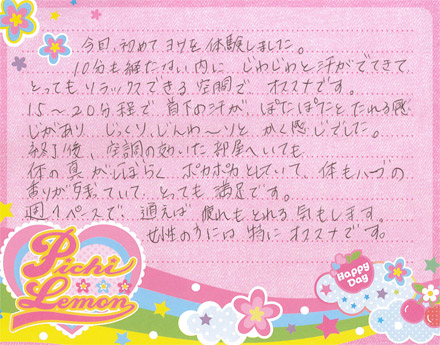 今回、初めてヨサを体験しました。
10分も経たない内に じわじわと汗がでてきて
とってもリラックスできる空間で オススメです。
15～20分程で 首下の汗が ぽたぽたと たれる感
じがあり じっくり、じんわ～りと かく感じでした。
終了後、空調の効いた部屋へいても
体の真がしばらく ポカポカとしていて、体もハーブの
香りが残っていて、とっても満足です。
週1ペースで 通えば 疲れもとれる気もします。
女性の方には 特に オススメです。
Pichi
Lemon
Happy
Day